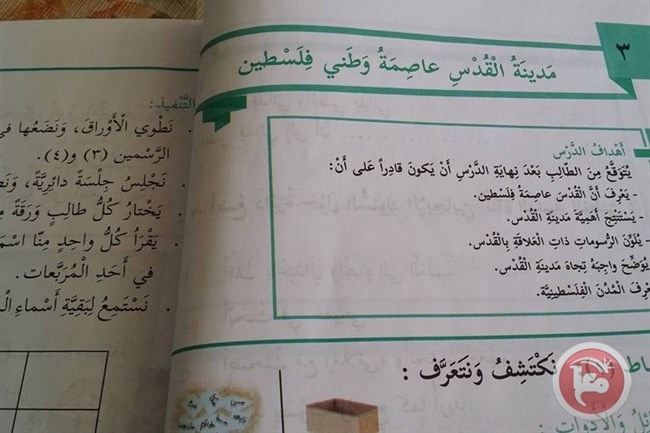 ٣
مَدينَةُ الْقُدْسِ عاصِمَةُ وَطَني فِلَسْطين
أَهْدافُ الدَّرْسِ
يُتَوَقَّعُ مِنَ الطّالِبِ بَعْدَ نِهايَةِ الدَّرْسِ أَنْ يَكونَ قادِراً عَلى أَنْ:
- يَعْرِفَ أَنَّ الْقُدْسَ عاصِمَةُ فِلَسْطين.
- يَسْتَنْتِجَ أَهَمِّيَّةَ مَدينَةِ الْقُدْسِ.
- يُلَوِّنَ الرُّسوماتِ ذاتِ الْعَلاقَةِ بِالْقُدْسِ.
يُوَضِّحَ واجِبَهُ تِجاهَ مَدينَةِ الْقُدْسِ.
الْمُدُنَ الْفِلَسْطينِيَّةَ.
نَكْتَشِفُ وَنَتَعَرَّف :
وَالْأَدَواتُ
التَّنْفيذ:
. نَطْوي الْأَوْراقَ، وَنَضَعُها في
الرَّسْمين (٣) و(٤).
. نَجْلِسُ جِلْسَةً دائِرِيَّةً،
. يَخْتارُ كُلُّ طالِبٍ وَرَقَةً
. يَقْرَأُ كُلُّ واحِدٍ مِنّا
في أَحَدِ الْمُرَبَّعات.
. نَسْتَمِعُ لِبَقِيَّةِ أَسْماءِ